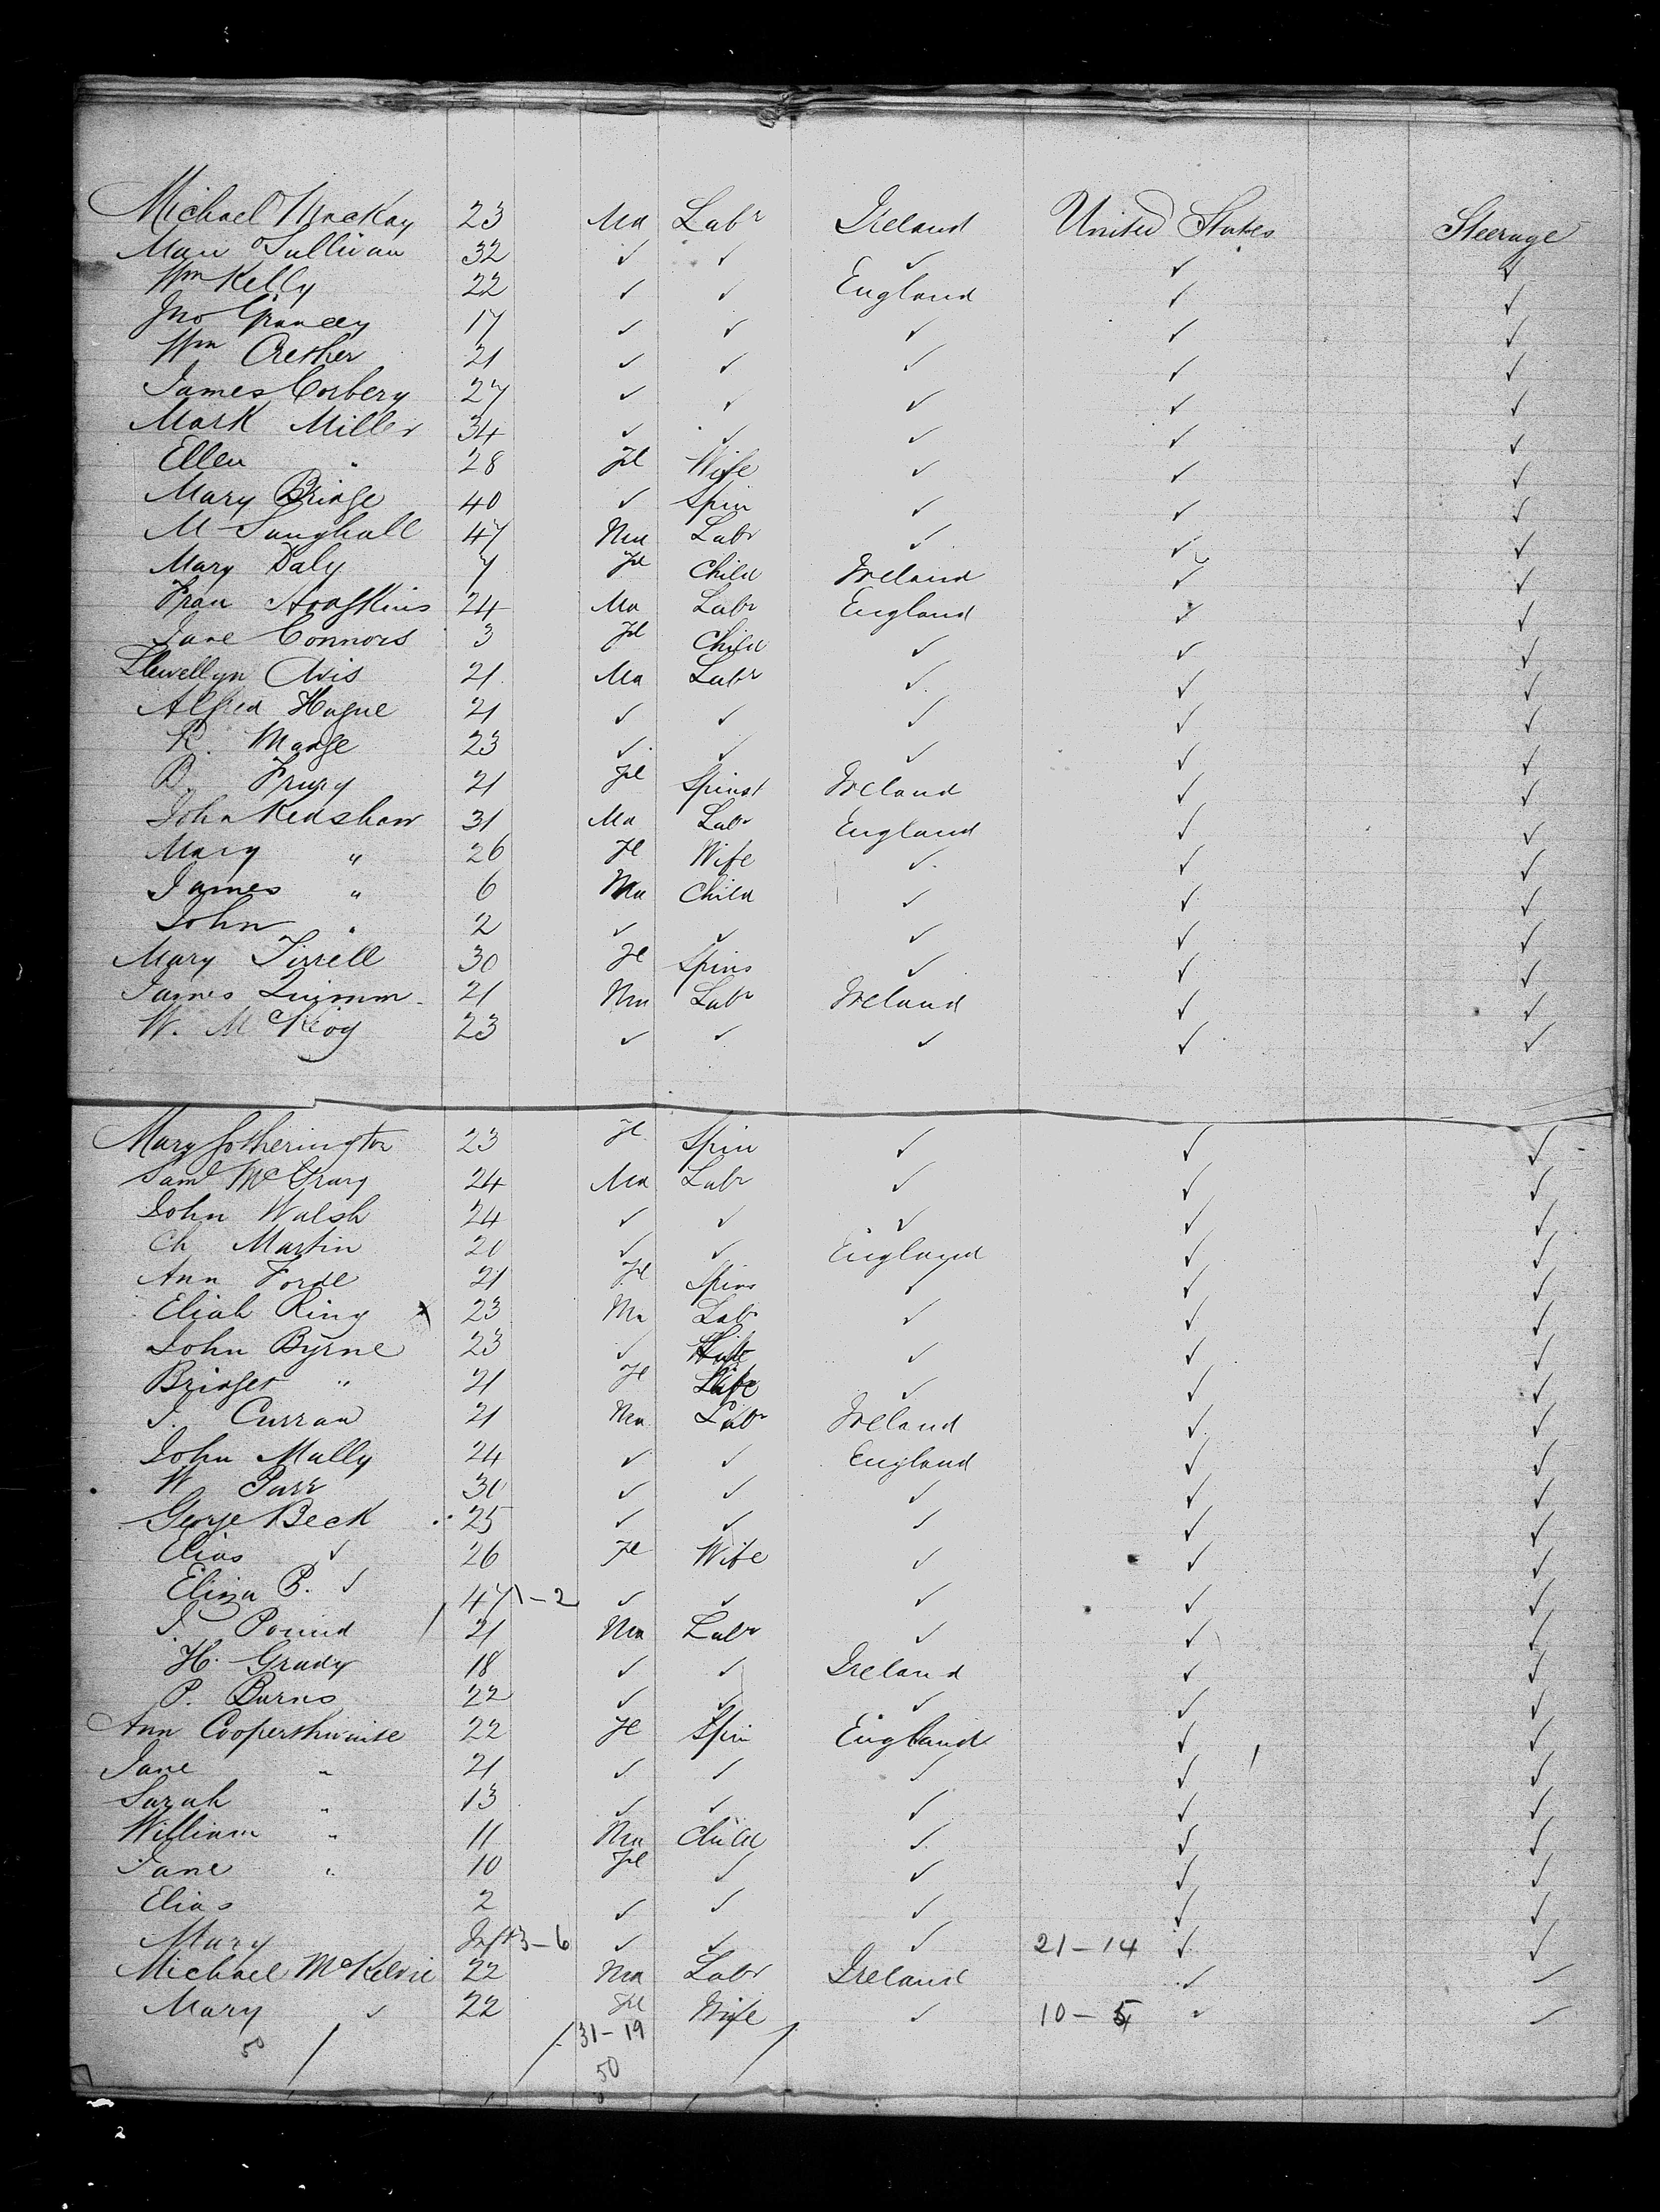 Michael MacKay 23 Ma Labr Ireland United States Steerage
Mau O'Sullivan 32 ✓ ✓ ✓ ✓ ✓
Wm Kelly 22 ✓ ✓ England ✓ ✓
Jno 17 ✓ ✓ ✓ ✓ ✓
Wm Crether 21 ✓ ✓ ✓ ✓ ✓
James Corbery 27 ✓ ✓ ✓ ✓ ✓
Mark Miller 34 ✓ ✓ ✓ ✓ ✓
Ellen " 28 Fe Wife ✓ ✓ ✓
Mary Bridge 40 ✓ Spin ✓ ✓ ✓
M 47 Ma Labr ✓ ✓ ✓
Mary Daly 7 Fe Child Ireland ✓ ✓
Fran 24 Ma Labr England ✓ ✓
Jane Connors 3 Fe Child ✓ ✓ ✓
Llewellyn Avis 21 Ma Labr ✓ ✓ ✓
Alfred Hague 21 ✓ ✓ ✓ ✓ ✓
R. Madge 23 ✓ ✓ ✓ ✓ ✓
B. 21 Fe Spinst Ireland ✓ ✓
John Kedshaw 31 Ma Labr England ✓ ✓
Mary " 26 Fe Wife ✓ ✓ ✓
James " 6 Ma Child ✓ ✓ ✓
John " 2 ✓ ✓ ✓ ✓ ✓
Mary Tirrell 30 Fe Spins ✓ ✓ ✓
James 21 Ma Labr Ireland ✓ ✓
W. McKeoy 23 ✓ ✓ ✓ ✓ ✓
Mary Fotherington 23 Fe Spin ✓ ✓ ✓
Saml 24 Ma Labr ✓ ✓ ✓
John Walsh 24 ✓ ✓ ✓ ✓ ✓
Ch Martin 20 ✓ ✓ England ✓ ✓
Ann Forde 21 Fe Spins ✓ ✓ ✓
Eliah Ring x 23 Ma Labr ✓ ✓ ✓
John Byrne 23 ✓ ✓ ✓ ✓
Bridget " 21 Fe Wife ✓ ✓ ✓
J. Curran 21 Ma Labr Ireland ✓ ✓
John Mally 24 ✓ ✓ England ✓ ✓
W Parr 30 ✓ ✓ ✓ ✓ ✓
George Beck 25 ✓ ✓ ✓ ✓ ✓
Elias ✓ 26 Fe Wife ✓ ✓ ✓
Eliza B. ✓ 47 1-2 ✓ ✓ ✓ ✓ ✓
J. Pound 21 Ma Labr ✓ ✓ ✓
H. Grady 18 ✓ ✓ Ireland ✓ ✓
P. Burns 22 ✓ ✓ ✓ ✓ ✓
Ann Cooperthwaite 22 Fe Spin England ✓ ✓
Jane " 21 ✓ ✓ ✓ ✓ ✓
Sarah " 13 ✓ ✓ ✓ ✓ ✓
William " 11 Ma Child ✓ ✓ ✓
Jane " 10 Fe ✓ ✓ ✓ ✓
Elias 2 ✓ ✓ ✓ ✓ ✓
Mary Inft 3-6 ✓ ✓ ✓ 21-14 ✓ ✓
Michael McKelvie 22 Ma Labr Ireland ✓ ✓
Mary ✓ 22 Fe Wife ✓ 10-5 ✓ ✓
50 31-19
50
2